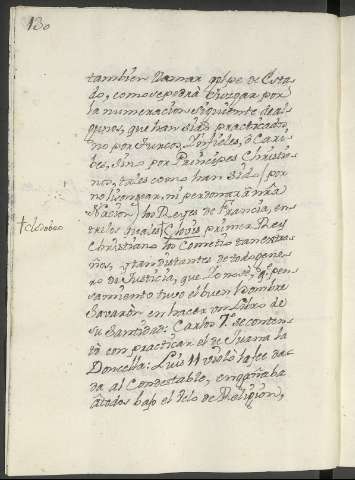 130
tambien llamar golpe de Esta-
do, como se podrá Juzgar por
la numeracion siguiente de al-
gunos, que han sido practicados,
no por Turcos, Infieles, ò Cari-
bes, sino por Principes Christia-
nos, tales como han sido (por
no lisongear, ni perdonar à nrã
Nacion) los Reyes de Francia, en-
tre los quales † Clovis primer Rey
† Clodobeo
Christiano los cometio tan extra-
ños, y tan distantes de todo gene-
ro de Justicia, que Yo no sè qe pen-
samiento tuvo el buen hombre
Savaròn en hacer un Libro de
su Santidad: Carlos 7º. se conten-
tò con practicar el de Juana la
Doncella: Luis 11 violò la fee da-
da al Condestable, engañaba
à todos bajo el velo de Religion,